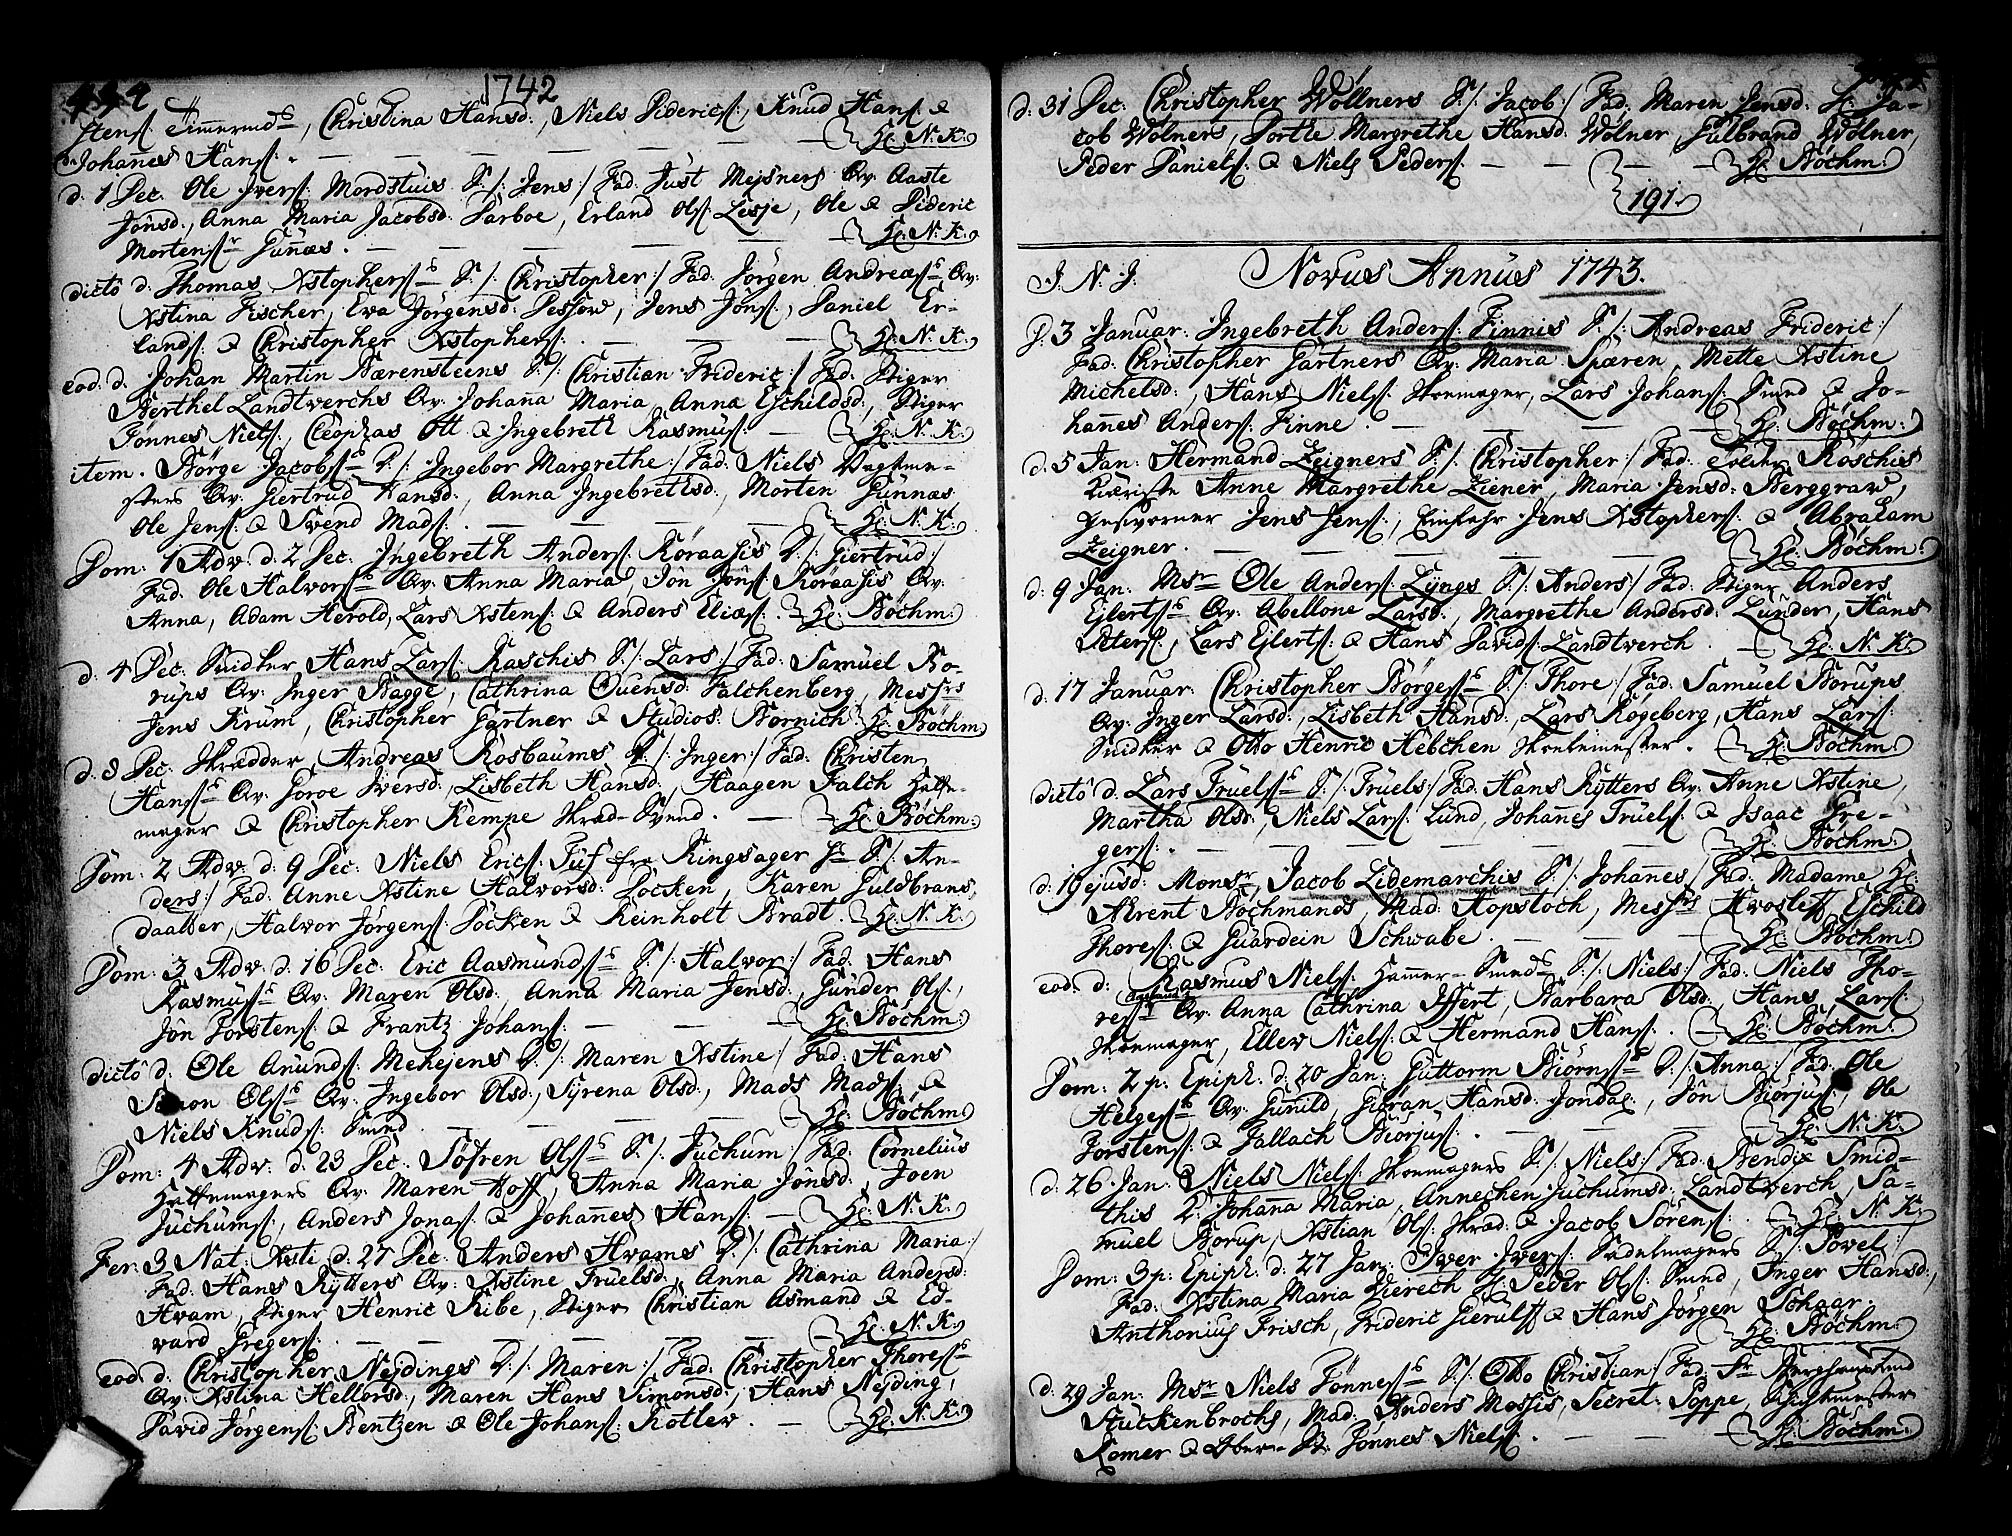 444
1742
stens: Timmermds, Christina Hansd:, Niels Diderics:, Knud Hans: &
Johanes Hans: . — H: N. K:
d. 1 Dec. Ole Ivers: Mordstuis S:/: Jens:/ Fad: Just Mejsners Qv: Aaste
Jönsd:, Anna Maria Jacobsd: Darboe, Erland Ols: Lesje, Ole & Dideric
Mortens: Gunnæs. — H: N: K:
dictô d: Thomas Xstophers: S:/: Christopher:/ Fad: Jörgen Andreæs: Qv:
Xstina Fischer, Eva Jörgensd: Dessow, Jens Jöns:, Daniel Er-
lands: & Christopher Xstophers: — H: N. K:
eod. d. Johan Martin Bærensteens S:/: Christian Frideric:/ Fad: Stiger
Berthel Landtverchs Qv: Johaña Maria, Anna Eschildsd:, Stiger
Tönnes Niels:, Cleophas Ott & Ingebreth Rasmus: — H: N: K:
item. Börge Jacobs: D:/: Ingebor Margrethe:/ Fad: Niels Vagtme-
sters Qv: Giertrud Hansd:, Anna Ingebrethsd:, Morten Gunnæs
Ole Jens: & Svend Mads: — H: N. K:
Dom: 1 Adv. d. 2 Dec. Ingebreth Anders: Röraasis D:/: Giertrud:/
Fad. Ole Halvors: Qv: Anna Maria, Jôn Jôns: Röraasis Qv:
Anna, Adam Herold, Lars Xstens: & Anders Eliæs: — H: Böchm:
d. 4 Dec. Snidker Hans Lars: Raschis S:/: Lars:/ Fad: Samuel Bo-
rups Qv: Inger Bagge, Cathrina Ouensd: Falchenberg, Messrs
Jens Krum, Christopher Gartner & Studios: Bornich H: Böchm:
d. 8 Dec. Skrædder Andreas Rosbaums D:/: Inger:/ Fad: Christen
Hans: Qv: Goroe Iversd:, Lisbeth Hansd:, Haagen Falch
mager & Christopher Kempe Skræd-Svend. — H: Böchm:
Dom: 2 Adv: d. 9 Dec. Niels Erics: Fus fra Ringsager S:/: An-
ders:/ Fad: Anne Xstine Halvorsd: Docken, Karen Guldbrans
daatter, Halvor Jörgens: Docken & Reinholt Bradt. H: N. K:
Dom: 3 Adv: d. 16 Dec. Eric Aasmunds: S:/: Halvor:/ Fad: Hans
Rasmus: Qv: Maren Olsd:, Anna Maria Jensd:, Gunder Ols:,
Jön Torstens: & Frantz Johans: — H: Böchm:
dictô d: Ole Anunds: Mehejens D:/: Maren Xstine:/ Fad: Hans
Simon Ols: Qv: Ingebor Olsd:, Syrena Olsd:, Mads Mads: &
Niels Knuds: Smed. — H: Böchm:
Dom: 4 Adv: d. 23 Dec. Söfren Ols: S:/: Juchum:/ Fad: Cornelius
Qv: Maren Hoff, Anna Maria Jönsd:, Joen
Juchums:, Anders Jonas: & Johannes Hans: — H: N. K:
Fer: 3 Nat: Xsti d: 27 Dec. Anders Hvams D:/: Cathrina Maria:/
Fad. Hans Rytters Qv: Xstine Truelsd:, Anna Maria Andersd:
Hvam, Stiger Henric Ribe, Stiger Christian Asmand & Ed-
vard Gregers: — H: N. K:
eod d. Christopher Nejdings D:/: Maren:/ Fad: Christopher Thores:
Qv: Xstina Hellersd:, Maren Hans Simonsd:, Hans Nejding,
David Jörgens: Bentzen & Ole Johans: Kotler. — H: N. K:
d. 31 Dec: Christopher Wöllners S:/: Jacob:/ Fad: Maren Jensd: Hr Ja-
cob Wölners, Dorthe Margrethe Hansd: Wölner, Gulbrand Wölner,
Peder Daniels: & Niels Peders: — H: Böchm:
191.
J. N. J. Novus Annus 1743.
d. 3 Januar: Ingebreth Anders: Finnis S:/: Andreas Frideric:/
Fad: Christopher Gartners Qv: Maria Spären, Mette Xstine
Michelsd:, Hans Niels: Skoemager, Lars Johans: Smed & Jo-
hannes Anders: Finne. — H: Böchm:
d. 5 Jan: Hermand Zeigners S:/: Christopher:/ Fad: Röschis
Kiæriste Anne Margrethe Ziener, Maria Jensd: Berggrav,
Gesvorner Jens Jens:, Einfahr Jens Xstophers: & Abraham
Zeigner. — H: Böchm:
d. 9 Jan: Msr Ole Anders: Lyngs S:/: Anders:/ Fad: Stiger Anders
Ejlerts: Qv: Abellone Larsd:, Margrethe Andersd: Lunder, Hans
Peters:, Lars Ejlerts: & Hans Davids: Landtverch. — H: N. K:
d. 17 Januar: Christopher Börges: S:/: Thore:/ Fad: Samuel Borups
Qv: Inger Larsd:, Lisbeth Hansd:, Lars Rögeberg, Hans Lars:
Snidker & Otto Henric Hebchen Skolemester. — H: Böchm:
dictô d. Lars Truels: S:/: Truels:/ Fad: Hans Rytters Qv: Anne Xstine,
Martha Olsd:, Niels Lars: Lund, Johannes Truels: & Isaac Gre-
gers: — H: Böchm:
d. 19 ejusd: Monsr Jacob Lidemarchis S:/: Johanes:/ Fad: Madame H:
Arent Böchmands, Mad: Hopstoch, Messrs Hvoslef, Eschild
Thores: & Guardein Schwabe. — H: Böchm:
eod. d: Rasmus Niels: Hammer-Smeds S:/: Niels:/ Fad: Niels Tho-
res: Qv: Anna Cathrina Iffert, Barbara Olsd: Hans Lars:
Skoemager, Ellev Niels: & Hermand Hans: . — H: Böchm:
Dom: 2 p: Epiph: d. 20 Jan: Guttorm Biörns: D:/: Anna:/ Fad: Ole
Helges: Qv: Gunild, Gioran Hansd: Jondal:, Jön Biörjus:, Ole
Torstens: & Tallach Biörjus: — H: N. K:
d. 26 Jan: Niels Niels: Skoemagers S:/: Niels:/ Fad: Bendix Smid-
this D: Johaña Maria, Annechen Juchumsd: Landtverch, Sa-
muel Borup, Xstian Ols: Skræd: & Jacob Sörens: — H: N. K:
Dom: 3 p: Epiph: d. 27 Jan: Iver Ivers: Sadelmagers S:/: Povel:/
Fad: Xstina Maria Dierech, H: Peder Ols: Smed, Inger Hansd:,
Anthonius Frisch, Frideric Gierulff & Hans Jörgen Schaar. —
H: Böchm:
d. 29 Jan: Msr Niels Tönnes: S:/: Otto Christian:/ Fad: Fr Berghauptmd
Stuckenbrochs, Mad: Anders Mossis, Secret: Poppe, Hyttemester
Romer & Ober-St: Tönnes Niels: — H: Böchm: